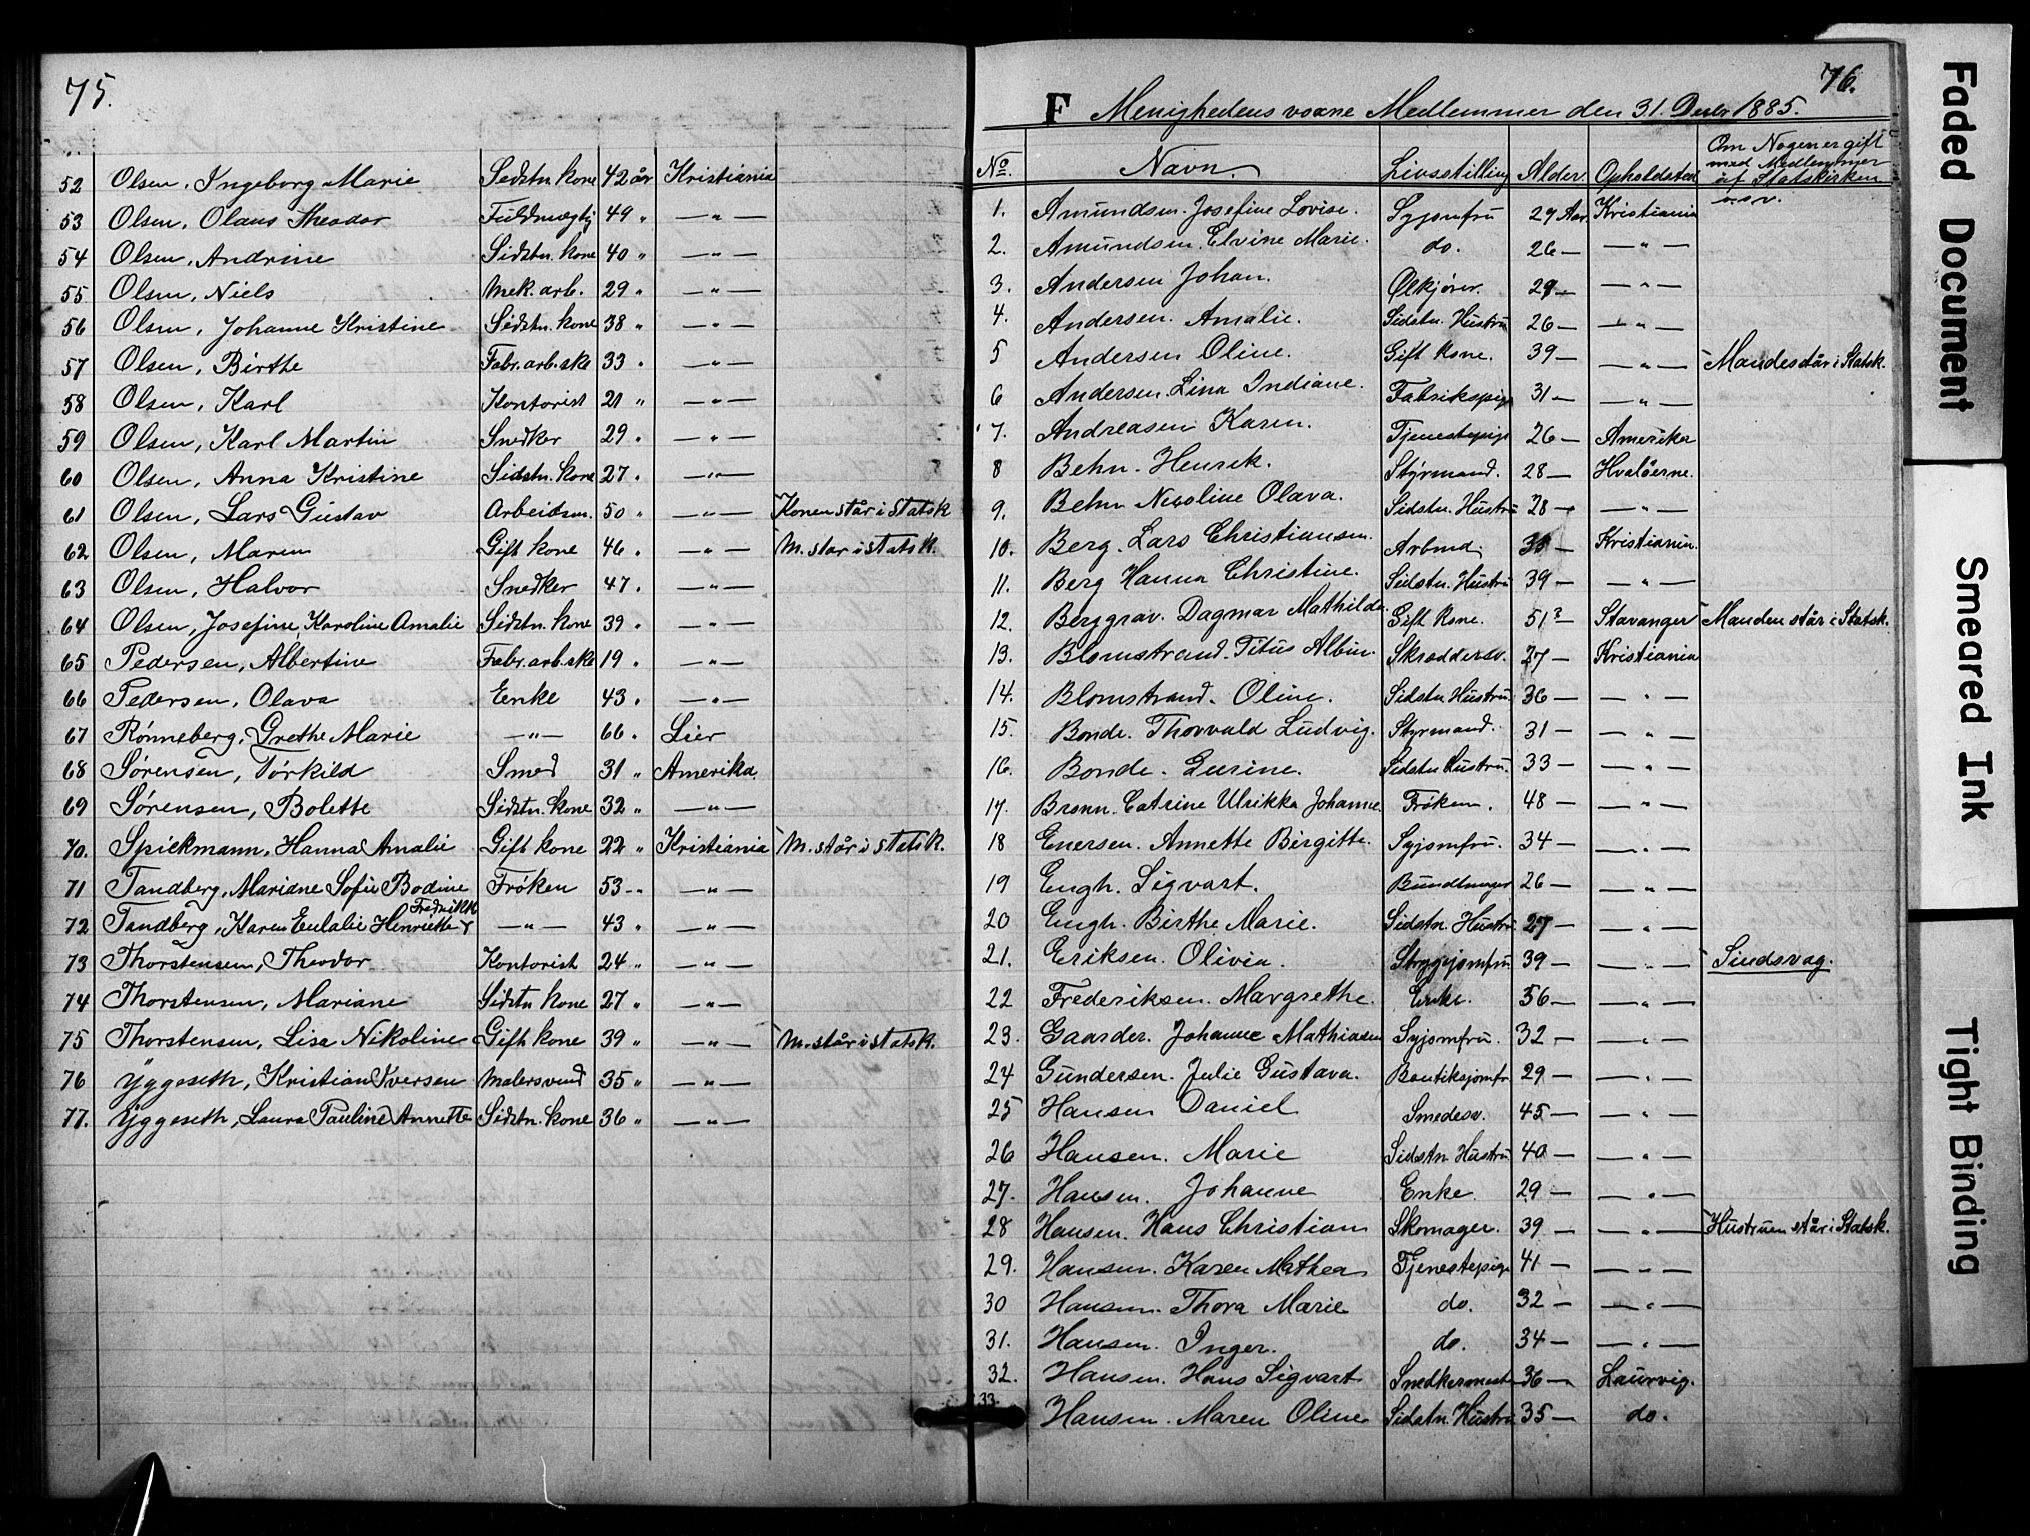 75.
52 Olsen, Ingeborg Marie Sidstn. kone 42 år Kristiania
53 Olsen, Olaus Theodor Fuldmægtig 49 " —"—
54 Olsen, Andrine Sidstn. kone 40 " —"—
55 Olsen, Niels Mek. arb. 29 " —"—
56 Olsen, Johanne Kristine Sidstn. kone 38 " —"—
57 Olsen, Birthe Fabr. arb. ske 33 " —"—
58 Olsen, Karl Kontorist 21 " —"—
59 Olsen, Karl Martin Snedker 29 " —"—
60 Olsen, Anna Kristine Sidstn. kone 27 " —"—
61 Olsen, Lars Gustav Arbeidsm. 50 " —"— Konen står i Statsk
62 Olsen, Maren Gift kone 46 " —"— M. står i Statsk.
63 Olsen, Halvor Snedker 47 " —"—
64 Olsen, Josefine Karoline Amalie Sidstn. kone 39 " —"—
65 Pedersen, Albertine Fabr. arb. ske 19 " —"—
66 Pedersen, Olava Enke 43 " —"—
67 Rönneberg, Grethe Marie —"— 66 " Lier
68 Sørensen, Törkild Smed 31 " Amerika
69 Sørensen, Bolette Sidstn. kone 32 " —"—
70. Spickmann, Hanna Amalie Gift kone 22 " Kristiania M. står i Statsk.
71 Tandberg, Mariane Sofie Bodine Frøken 53 " —"—
72 Tandberg, Karen Eulalie Henriette Fredrikke —"— 43 " —"—
73 Thorstensen, Theodor Kontorist 24 " —"—
74 Thorstensen, Mariane Sidstn kone 27 " —"—
75 Thorstensen, Lisa Nikoline Gift kone 39 " —"— M. står i Statsk.
76 Yggeseth, Kristian Iversen Malersvend 35 " —"—
77. Yggeseth, Laura Pauline Annette Sidstn. kone 36 " —"—
76.
F Menighedens voxne Medlemmer den 31. Decbr 1885.
No. Navn. Livsstilling Alder. Opholdsted Om Nogen er gift
med Medlemmer
af Statskirken
o.s.v.
1. Amundsen. Josefine Lovise. Syjomfru 29 Aar Kristiania
2. Amundsen. Elvine Marie. do. 26 — —"—
3. Andersen Johan. Ølkjører. 29 — —"—
4. Andersen. Amalie. Sidstn. Hustru 26 — —"—
5 Andersen Oline. Gift Kone. 39 — —"— Manden står i Statsk.
6 Andersen. Lina Indiane. Fabrikspige 31 — —"—
7. Andreasen Karen. Tjenestepige 26 — Amerika
8 Behn. Henrik. Styrmand. 28 — Hvaløerne.
9. Behn Nicoline Olava. Sidstn. Hustru 28 — —"—
10. Berg. Lars Christiansen. Arbmd. — Kristiania.
11. Berg Hanna Christine. Sidstn. Hustru 39 — —"—
12. Berggrav. Dagmar Mathilde. Gift Kone. 51? — Stavanger Manden står i Statsk.
13. Blomstrand. Titus Albin. Skræddersv. 27 — Kristiania
14. Blomstrand. Oline. Sidstn Hustru 36 — —"—
15. Bonde. Thorvald Ludvig. Styrmand. 31 — —"—
16. Bonde. Gurine. Sidstn Hustru. 33 — —"—
17. Brønn. Catrine Ulrikka Johanne Frøken. 48 — —"—
18 Enersen. Annette Birgitte. Syjomfru. 34 — —"—
19 Engh. Sigvart. Bundtmager 26 — —"—
20 Engh. Birthe Marie. Sidstn. Hustru 27 — —"—
21. Eriksen. Olivia. Strygejomfru 39 — —"— Sindsvag.
22 Frederiksen. Margrethe. Enke. 56 — —"—
23. Gaarder. Johanne Mathiasen Syjomfru. 32 — —"—
24 Gundersen. Julie Gustava. Boutiksjomfr. 29 — —"—
25 Hansen Daniel Smedesv. 45 — —"—
26 Hansen. Marie Sidstn. Hustru 40 — —"—
27. Hansen. Johanne Enke. 29 — —"—
28 Hansen. Hans Christian Skomager. 39 — —"— Hustruen står i Statsk.
29. Hansen. Karen Mathea Tjenestepige 41 — —"—
30 Hansen. Thora Marie do. 32 — —"—
31. Hansen. Inger. do. 34 — —"—
32. Hansen. Hans Sigvart Snedkermester 36 — Laurvig.
33 Hansen. Maren Oline Sidstn. Hustru 35 — do.
Faded Document
Smeared Ink
Tight Binding